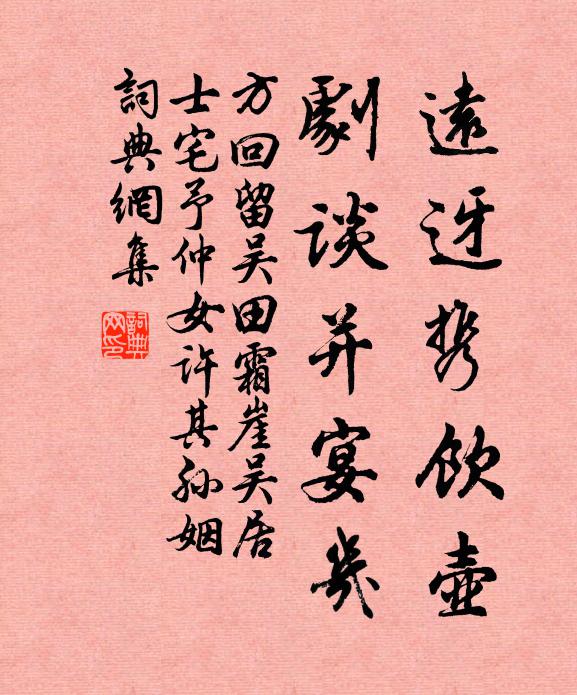 遠迓携飲壺
劇談并宴幾
方回留吴田霜崖吴居
士宅予仲女許其孙姻
詞典網集
詞典
网印